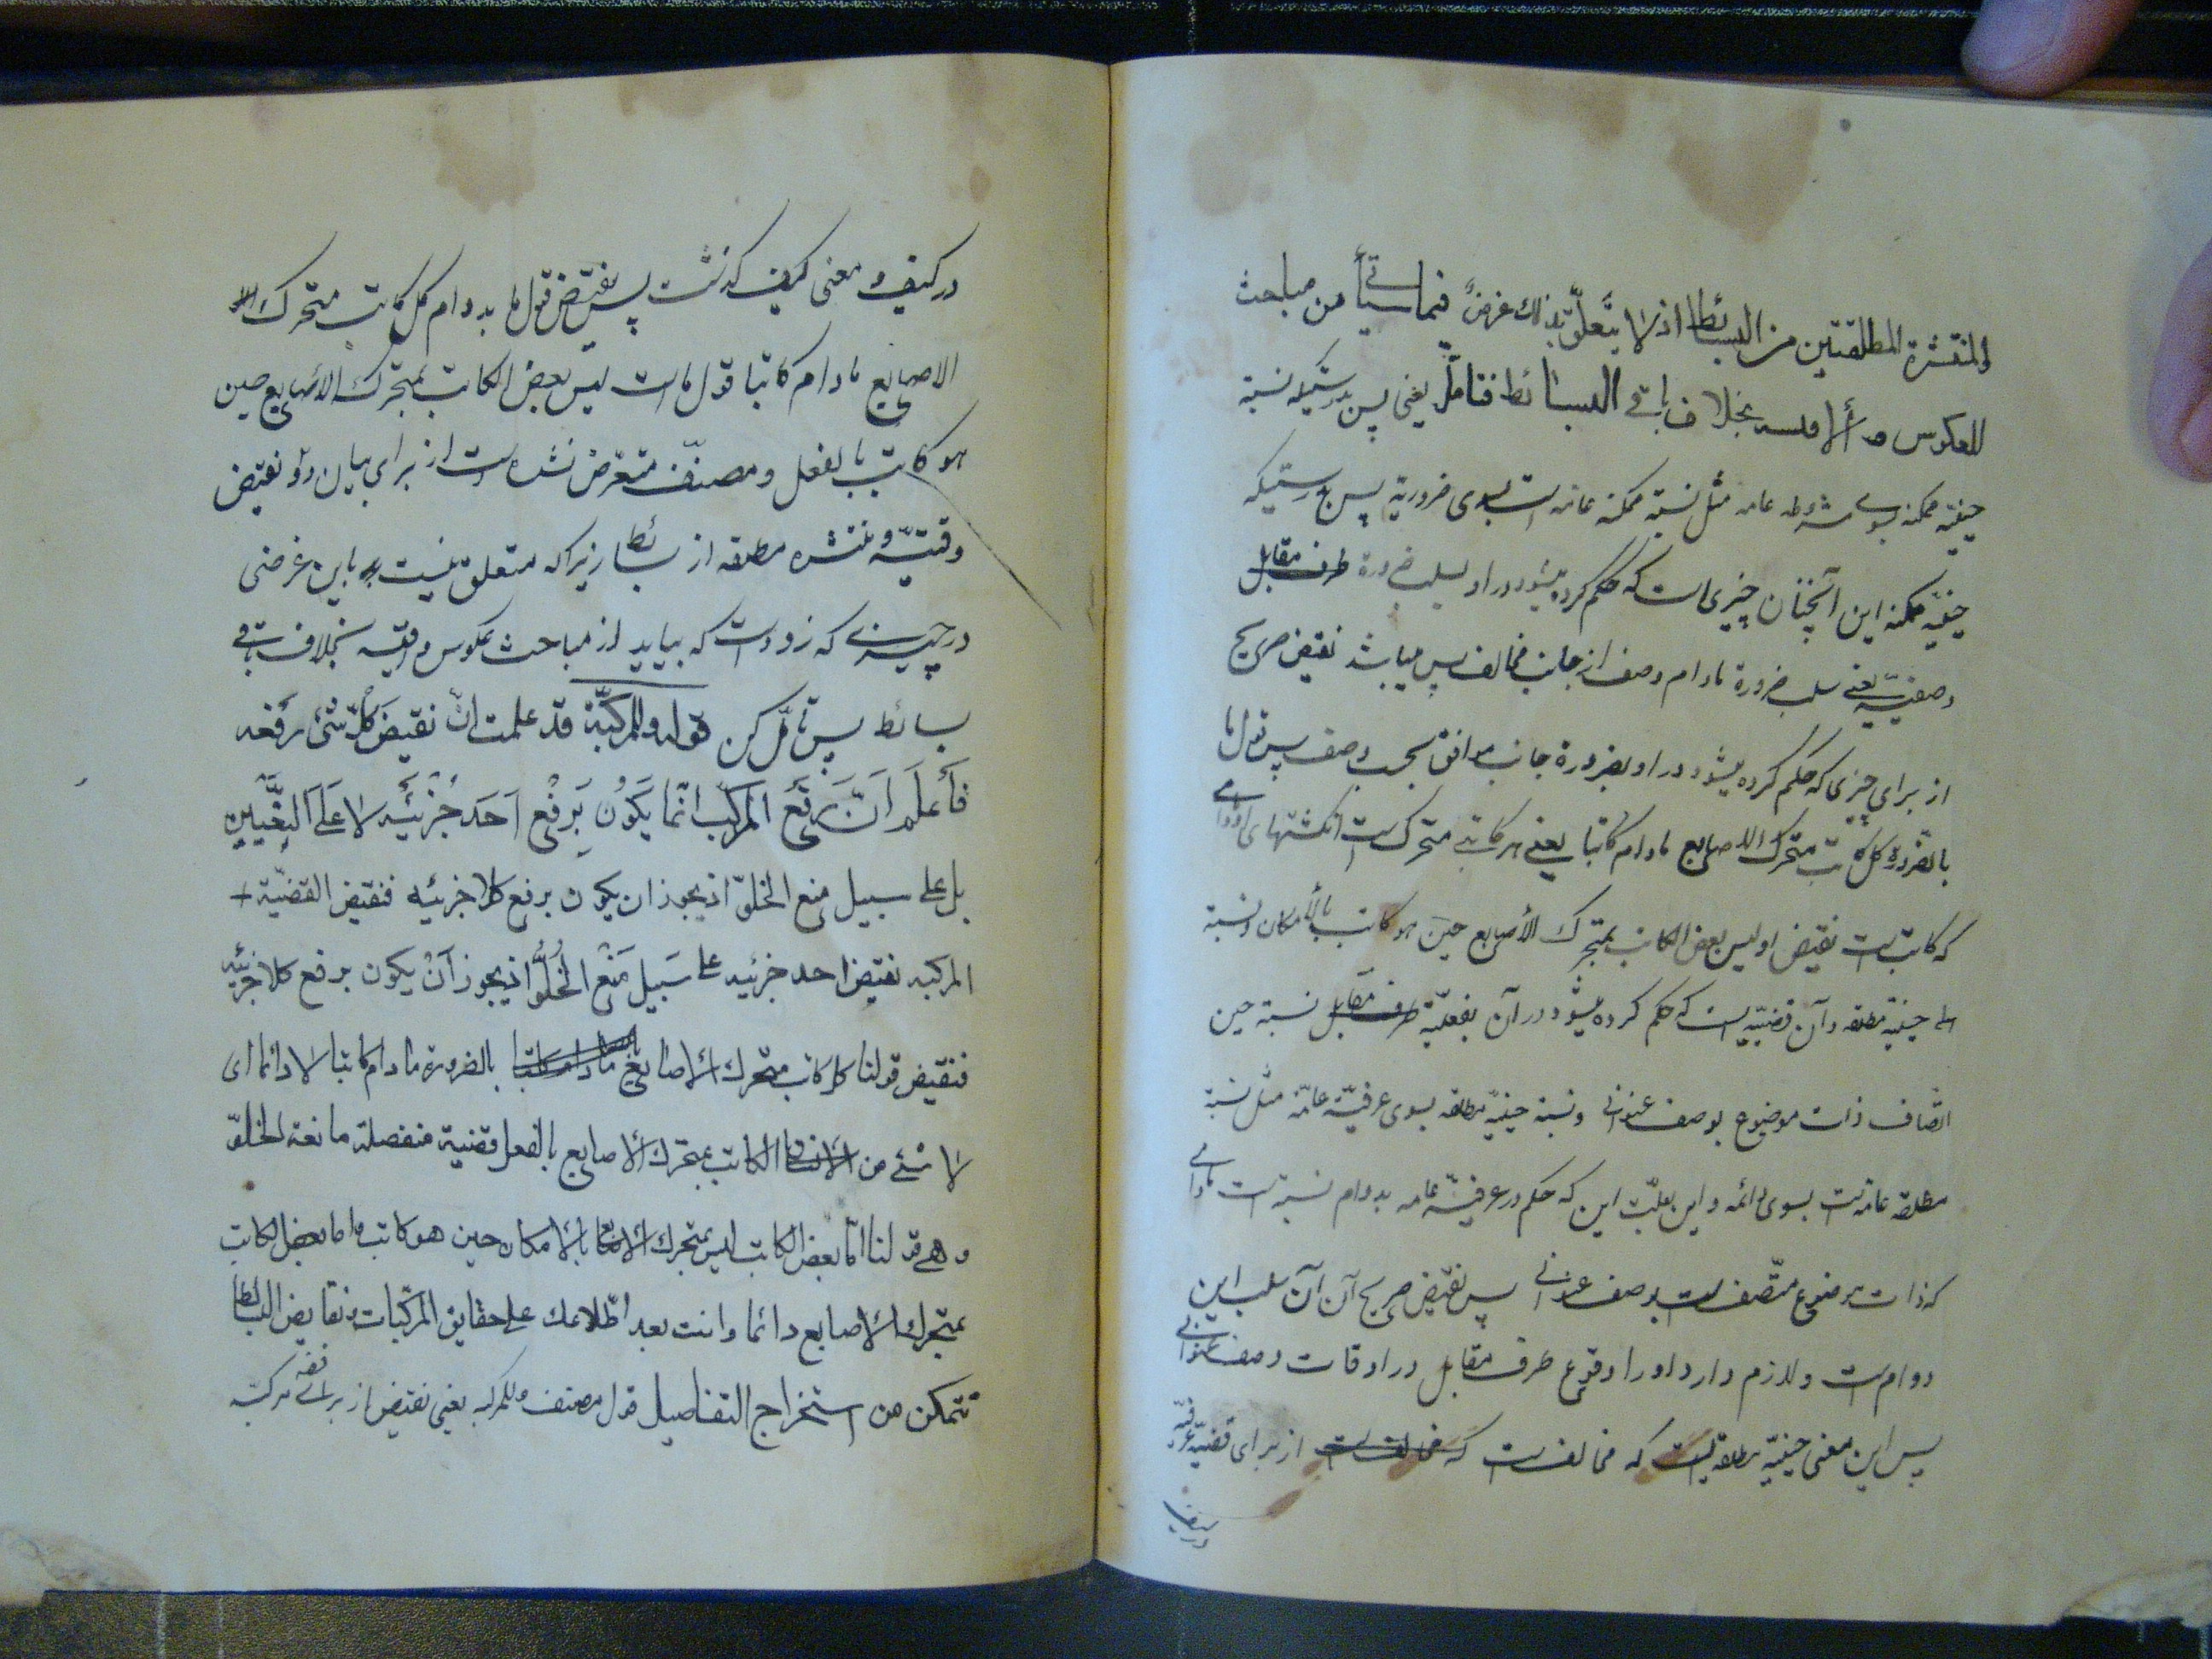 والمنتشرة المطلقتین من البسائط اذ لا یتعلّق بذلك غرضٌ فیما سیأتی من مباحث
للعکوس و الأقیسه بخلاف باقی البسائط فتامّل یعنی پس بدرستیکه نسبة
حینیّه ممکنه بسوی مشروطه عامه مثل نسبة ممکنه عامه است بسوی ضروریّة پس بدرستیکه
حینیّه ممکنه این آنچنان چیزی است که حکم کرده میشود در او بسلب ضرورة طرف مقابل
وصفیّه یعنی سلب ضرورة مادام وصف از جانب مخالف پس میباشد نقیض صریح
از برای چیزی که حکم کرده میشود در او بضرورة جانب موافق بحسب وصف پس قول ما
بالضرورة کل کاتب متحرك الاصابع مادام کاتبا یعنی هر کاتبی متحرک است انگشتهای او مادامی
که کاتب است نقیض او لیس بعض الکاتب بمتحرك الأصابع حین هو کاتب بالأمکان و نسبة
حینیّه مطلقه و آن قضیّه ایست که حکم کرده میشود در آن بفعلیّة طرف مقابل نسبة حین
اتّصاف ذات موضوع بوصف عنوانی و نسبة حینیّه مطلقه بسوی عرفیّة عامّه مثل نسبة
مطلقه عامه است بسوی دائمه و این بعلّت این که حکم در عرفیّه عامه بدوام نسبة است مادامی
که ذات موضوع متّصف است بوصف عنوانی پس نقیض صریح آن آن سلب این
دوام است و لازم دارد او را وقوع طرف مقابل در اوقات وصف عنوانی
پس این معنی حینیّه مطلقه است که مخالف است که مخالف است از برای قضیّه عرفیّه
در کیف و معنی کیف گذشت پس نقیض قول ما بدوام کل کاتب متحرك
الاصابع مادام کاتبا قول ما است لیس بعض الکاتب بمتحرك الأصابع حین
هو کاتب بالفعل و مصنّف متعرّض نشده است از برای بیان دو نقیض
وقتیّه و منتشره مطلقه از بسائط زیراکه متعلق نیست باین غرضی
در چیزی که زود است که بیاید از مباحث عکوس و اقیسه بخلاف باقی
بسائط پس تامّل کن قوله والمرکبّة قد علمت انّ نقیضَ کلّ شئ رَفعه
فَأَعلَم اَنّ رَفعَ المرکّب انّما یَکوُن بَرفْعِ اَحَد جُزئَیْه لا عَلَی التّعییین
بل علی سبیل منع الخلوّ اذ یجوز ان یکون برفع کلا جزئیه فنقیض القضیّة
المرکبه نقیض احد جزئیه علی سَبیل مَنْع الخُلوّ اذ یجوز اَنْ یکون برفع کلا جزئیه
فنقیض قولنا کل کاتب متحرك الأصابع مادام کاتبا بالضرورة مادام کاتبا لا دائما ای
لا شئ من الکاتب بمتحرك الأصابع بالفعل قضیة منفصلة مانعة الخلوّ
و هی قولنا امّا بعض الکاتب لیس بمتحرك الأصابع بالأمکان حین هو کاتب و اما بعض الکاتب
بمتحرك الأصابع دائما و انت بعد اطّلاعك علی حقایق المرکّبات و نقایض البسائط
تتمکّن من استخراج التفاصیل قول مصنف و للمرکبه یعنی نقیض از برای قضیه مرکبّه